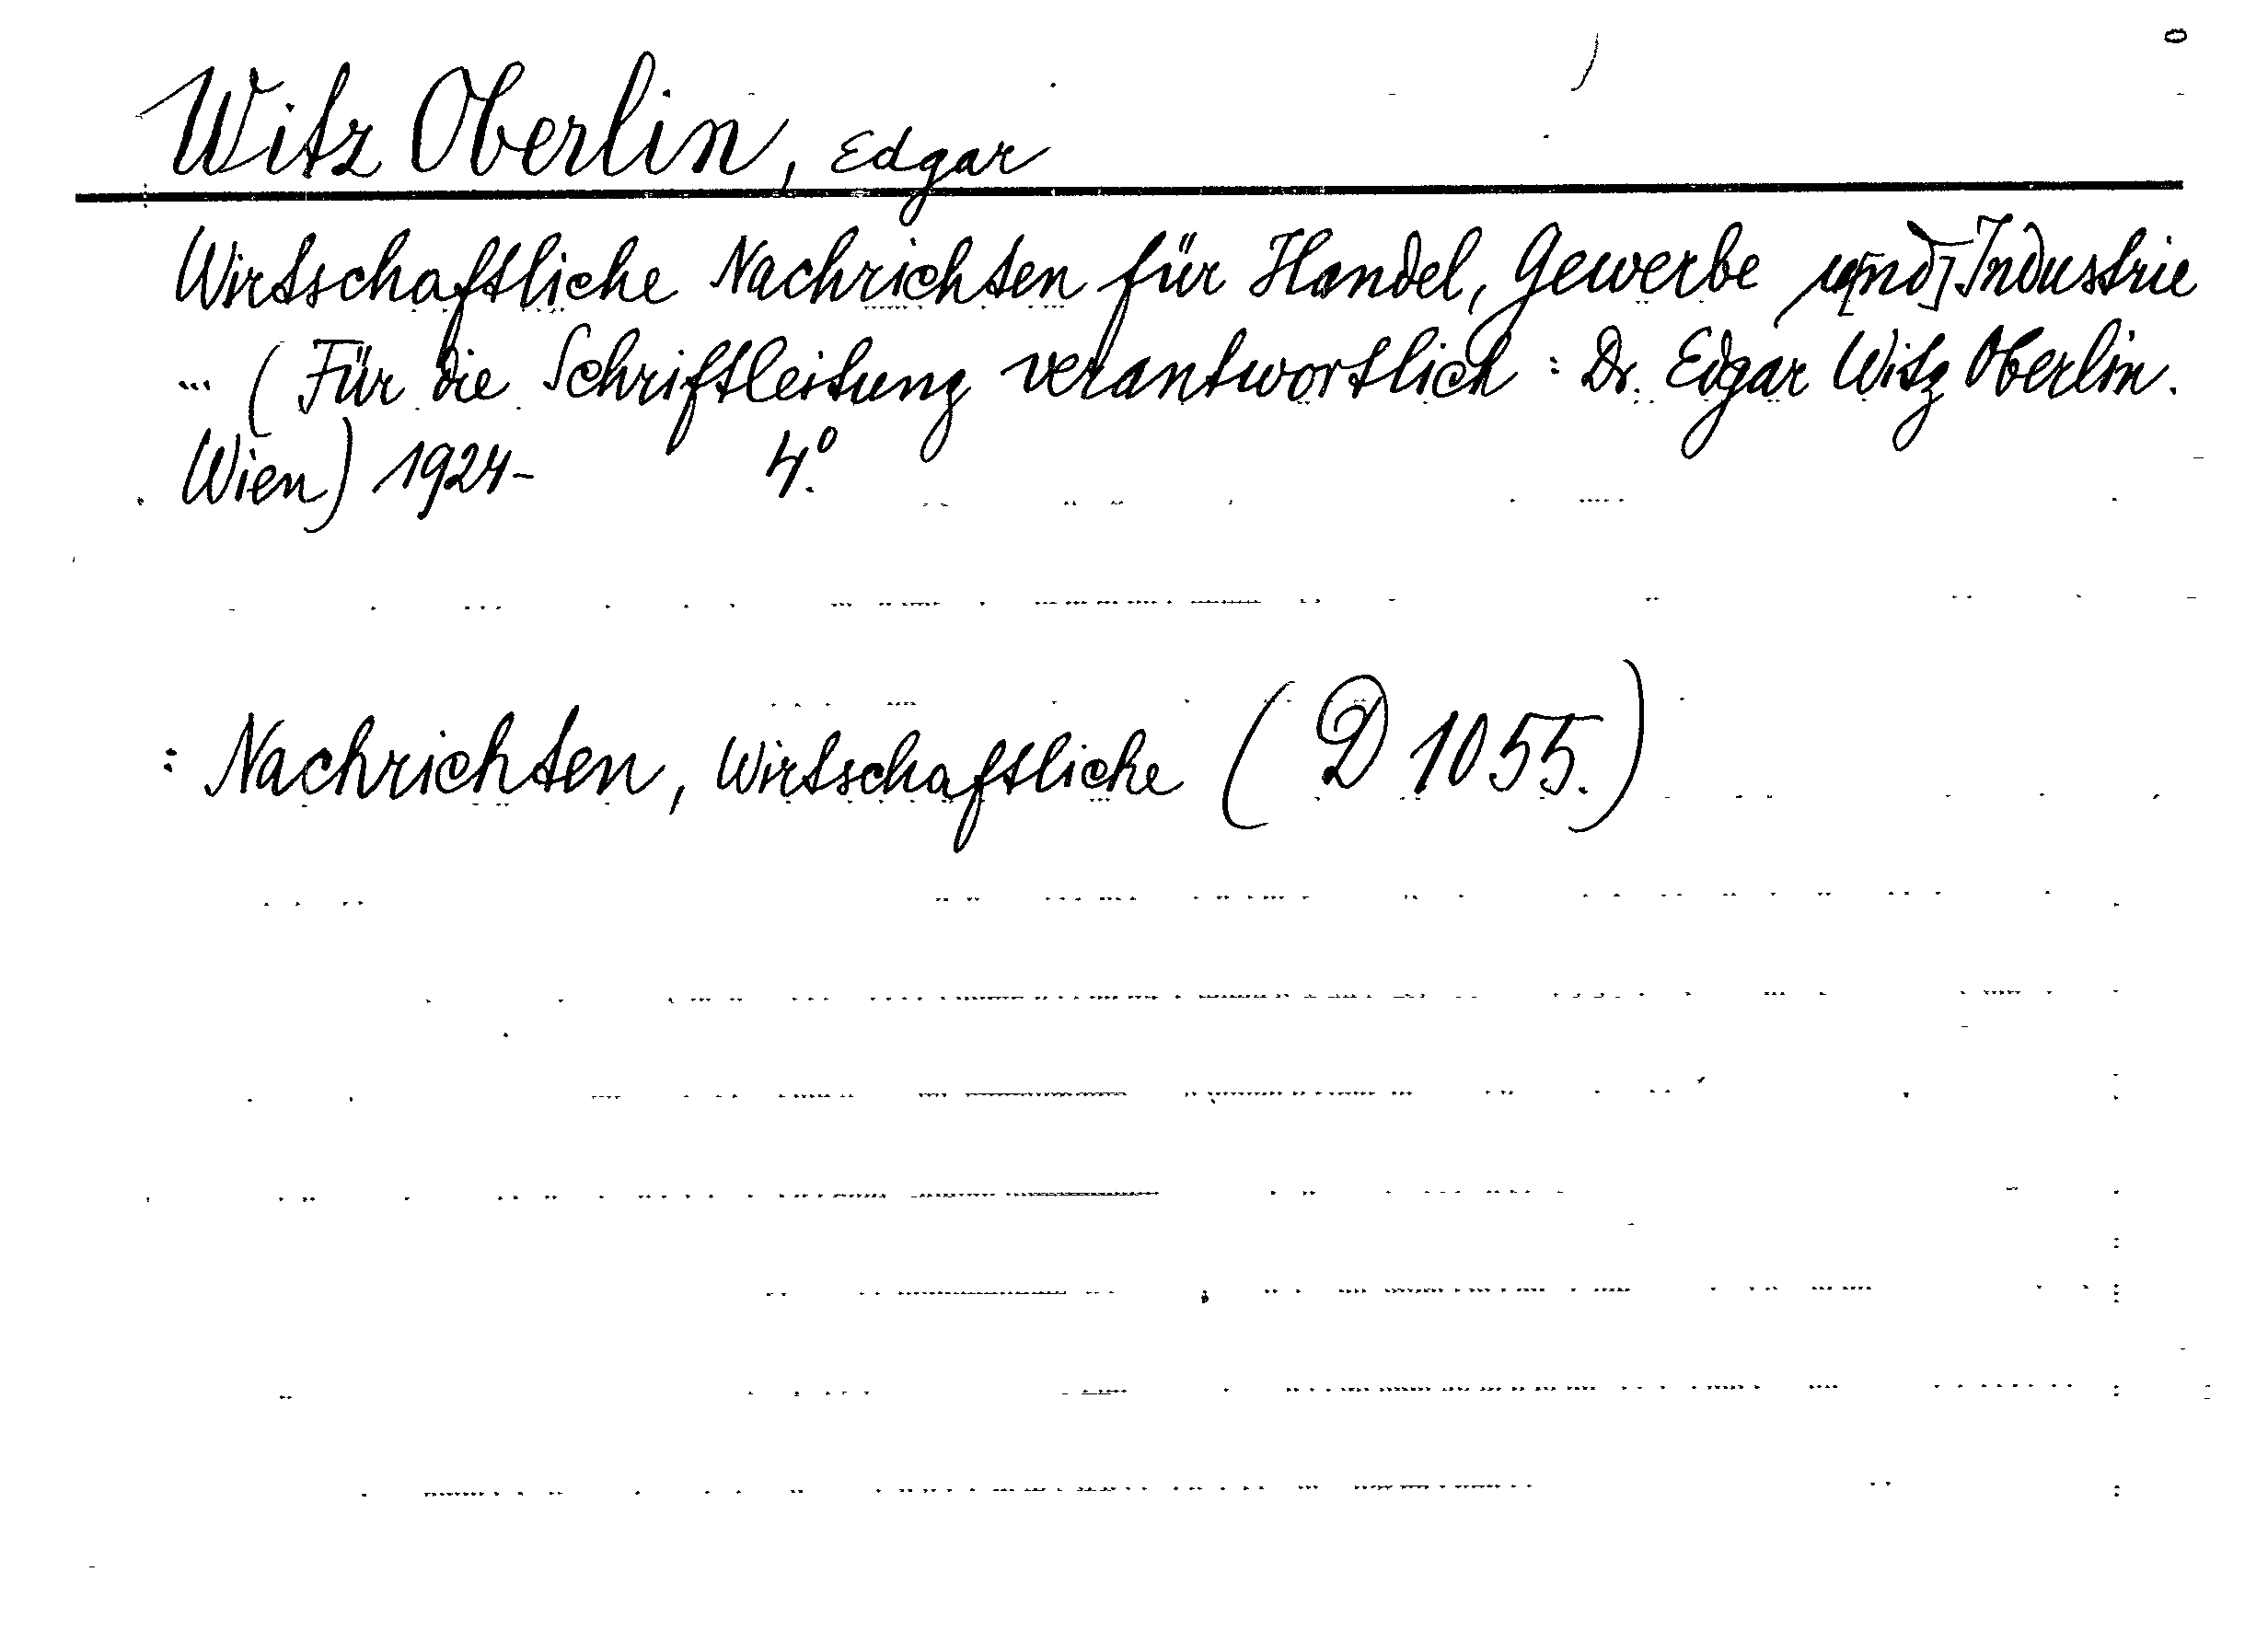 Witz Oberlin, Edgar
Wirtschaftliche Nachrichten für Handel, Gewerbe u[nd] Industrie
... (Für die Schriftleitung verantwortlich: Dr. Edgar Witz Oberlin.
Wien) 1924- 4°.
: Nachrichten, Wirtschaftliche (D 1055.)